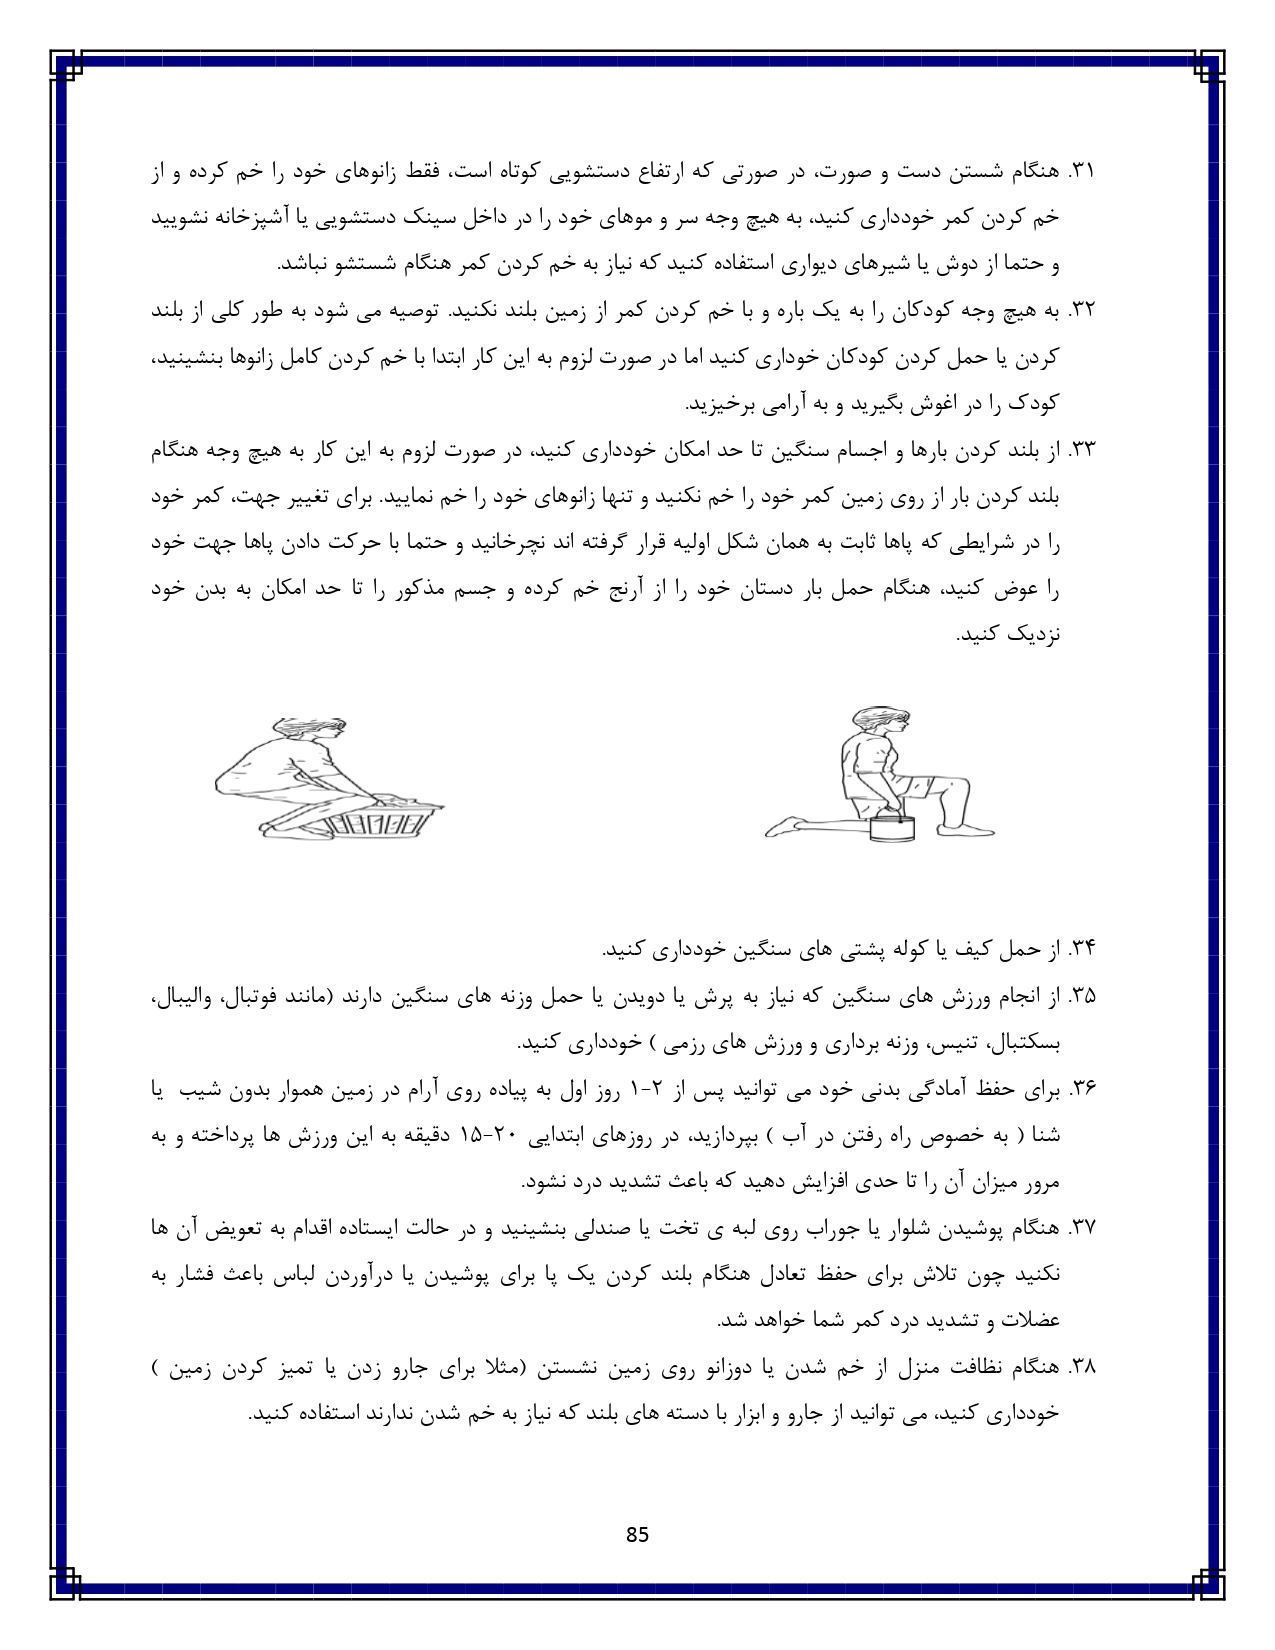 ۳۱. هنگام شستن دست و صورت، در صورتی که ارتفاع دستشویی کوتاه است، فقط زانوهای خود را خم کرده و از
خم کردن کمر خودداری کنید، به هیچ وجه سر و موهای خود را در داخل سینک دستشویی یا آشپزخانه نشویید
و حتما از دوش یا شیرهای دیواری استفاده کنید که نیاز به خم کردن کمر هنگام شستشو نباشد.
۳۲. به هیچ وجه کودکان را به یک باره و با خم کردن کمر از زمین بلند نکنید. توصیه می شود به طور کلی از بلند
کردن یا حمل کردن کودکان خوداری کنید اما در صورت لزوم به این کار ابتدا با خم کردن کامل زانوها بنشینید،
کودک را در اغوش بگیرید و به آرامی برخیزید.
۳۳. از بلند کردن بارها و اجسام سنگین تا حد امکان خودداری کنید، در صورت لزوم به این کار به هیچ وجه هنگام
بلند کردن بار از روی زمین کمر خود را خم نکنید و تنها زانوهای خود را خم نمایید. برای تغییر جهت، کمر خود
را در شرایطی که پاها ثابت به همان شکل اولیه قرار گرفته اند نچرخانید و حتما با حرکت دادن پاها جهت خود
را عوض کنید، هنگام حمل بار دستان خود را از آرنج خم کرده و جسم مذکور را تا حد امکان به بدن خود
نزدیک کنید.
۳۴. از حمل کیف یا کوله پشتی های سنگین خودداری کنید.
۳۵. از انجام ورزش های سنگین که نیاز به پرش یا دویدن یا حمل وزنه های سنگین دارند (مانند فوتبال، والیبال،
بسکتبال، تنیس، وزنه برداری و ورزش های رزمی ) خودداری کنید.
۳۶. برای حفظ آمادگی بدنی خود می توانید پس از ۲-۱ روز اول به پیاده روی آرام در زمین هموار بدون شیب یا
شنا ( به خصوص راه رفتن در آب ) بپردازید، در روزهای ابتدایی ۲۰-۱۵ دقیقه به این ورزش ها پرداخته و به
مرور میزان آن را تا حدی افزایش دهید که باعث تشدید درد نشود.
۳۷. هنگام پوشیدن شلوار یا جوراب روی لبه ی تخت یا صندلی بنشینید و در حالت ایستاده اقدام به تعویض آن ها
نکنید چون تلاش برای حفظ تعادل هنگام بلند کردن یک پا برای پوشیدن یا درآوردن لباس باعث فشار به
عضلات و تشدید درد کمر شما خواهد شد.
۳۸. هنگام نظافت منزل از خم شدن یا دوزانو روی زمین نشستن (مثلا برای جارو زدن یا تمیز کردن زمین )
خودداری کنید، می توانید از جارو و ابزار با دسته های بلند که نیاز به خم شدن ندارند استفاده کنید.
85